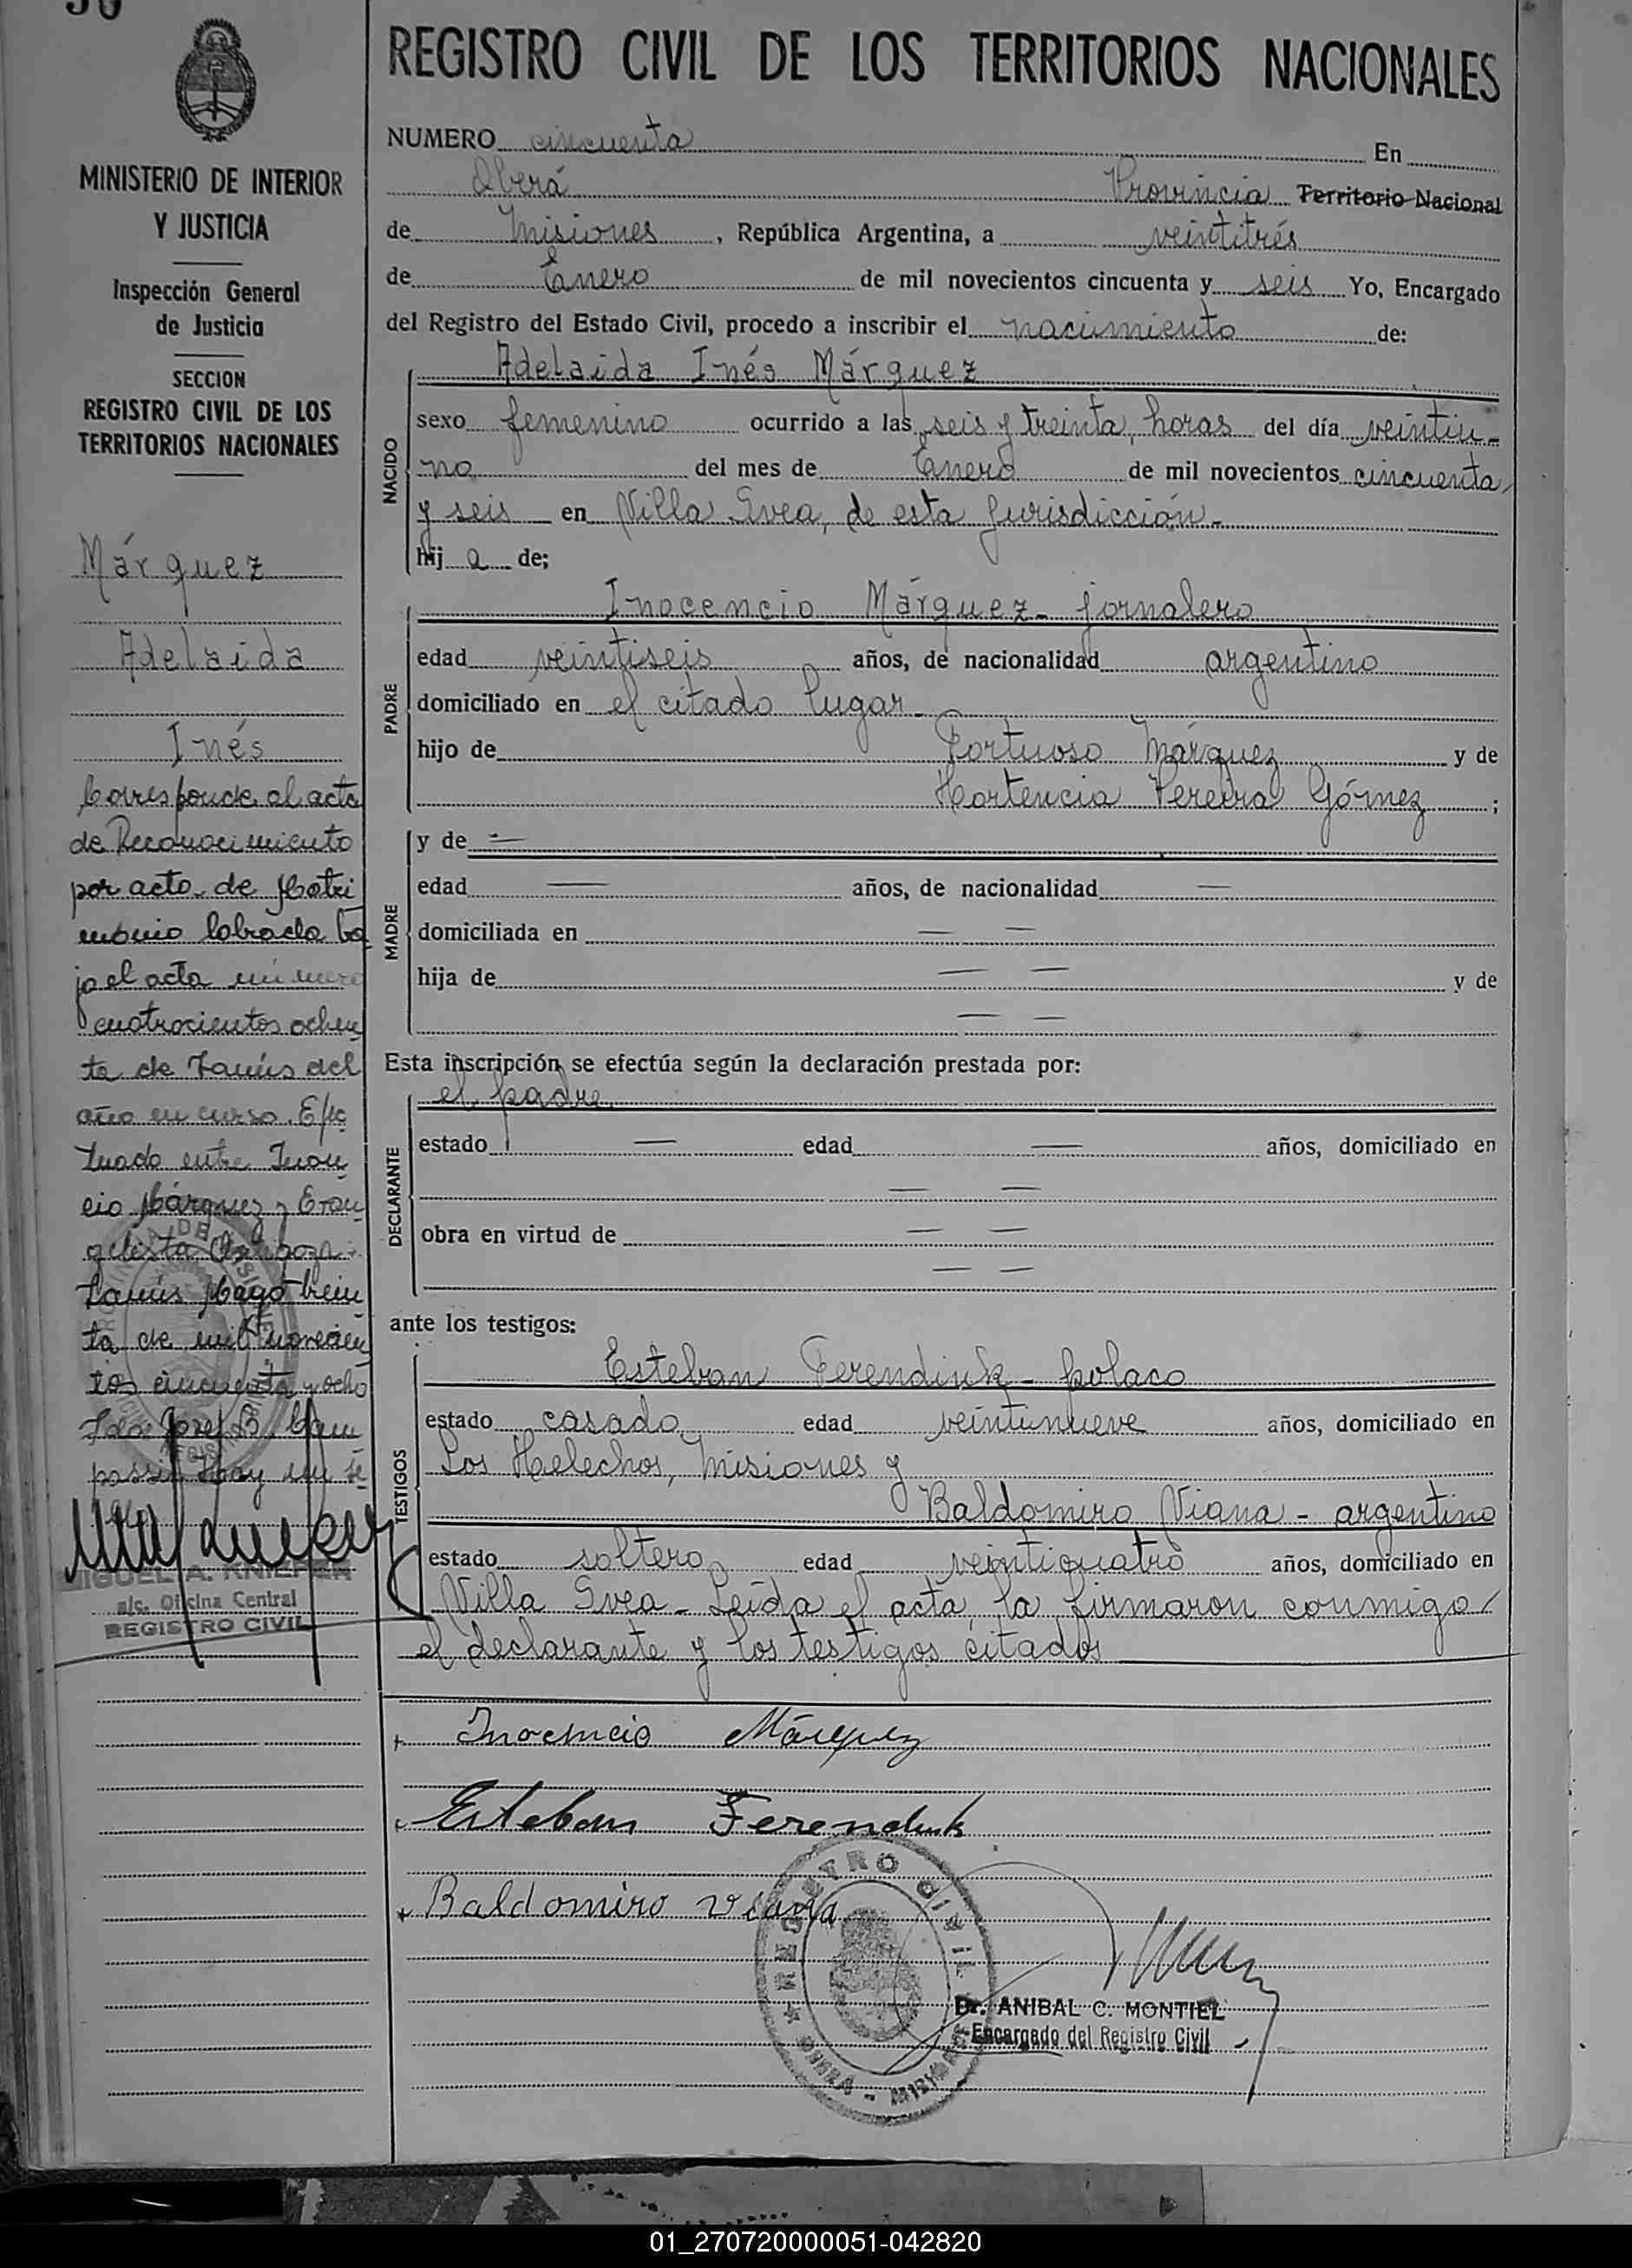 50
MINISTERIO DE INTERIOR
Y JUSTICIA
Inspección General
de Justicia
SECCION
REGISTRO CIVIL DE LOS
TERRITORIOS NACIONALES
Márquez
Adelaida
Inés
Corresponde al acta
de Reconocimiento
por acto de Matri
monio labrada ba
jo el acta número
cuatrocientos ochen
ta de Lanús del
año en curso. Efec
tuado entre Inocen
cio Márquez y Evan
gelista
Lanús Mayo trein
ta de mil novecien
tos cincuenta y ocho
Fdo: José B. Cam
passi. Hay un se
MIGUEL A. KNIEPER
a/c. Oficina Central
REGISTRO CIVIL
REGISTRO CIVIL DE LOS TERRITORIOS NACIONALES
NUMERO cincuenta En
Oberá Provincia Territorio Nacional
de Misiones, República Argentina, a veintitrés
de Enero de mil novecientos cincuenta y seis Yo, Encargado
del Registro del Estado Civil, procedo a inscribir el nacimiento de:
NACIDO
Adelaida Inés Márquez
sexo femenino ocurrido a las seis y treinta horas del día veintiu-
no del mes de Enero de mil novecientos cincuenta
y seis en Villa Svea, de esta Jurisdicción.-
hij a de;
PADRE
Inocencio Márquez - jornalero
edad veintiseis años, de nacionalidad argentino
domiciliado en el citado lugar.
hijo de Fortuoso Márquez y de
Hortencia Pereira Gómez ;
MADRE
y de —
edad — años, de nacionalidad —
domiciliada en — —
hija de — — y de
— —
Esta inscripción se efectúa según la declaración prestada por:
DECLARANTE
el padre
estado — edad — años, domiciliado en
— —
obra en virtud de — —
— —
ante los testigos:
TESTIGOS
Esteban Ferendiuk - polaco
estado casado edad veintinueve años, domiciliado en
Los Helechos, Misiones y
Baldomiro Viana - argentino
estado soltero edad veinticuatro años, domiciliado en
Villa Svea - Leída el acta, la firmaron conmigo
el declarante y los testigos citados
Inocencio Márquez
Esteban Ferendiuk
Baldomiro Viana
REGISTRO CIVIL
OBERA - MISIONES
Dr. ANIBAL C. MONTIEL
Encargado del Registro Civil
01_270720000051-042820